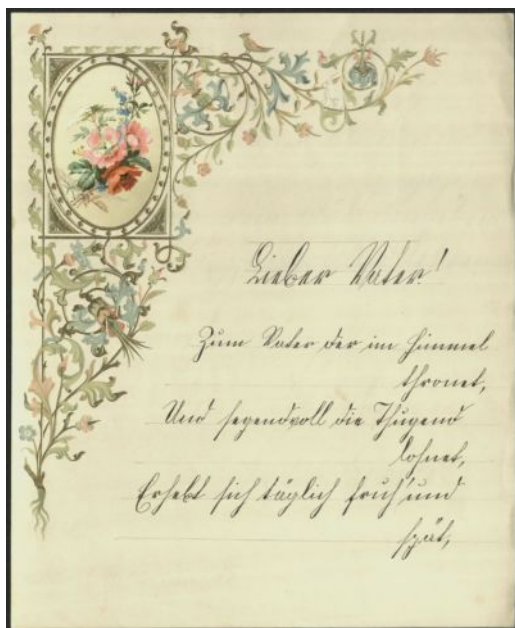 Lieber Vater!
Zum Vater der im Himmel
thronet,
Und segendvoll die Thugend
lohnet,
Erhebt sich täglich fruh' und
spät,